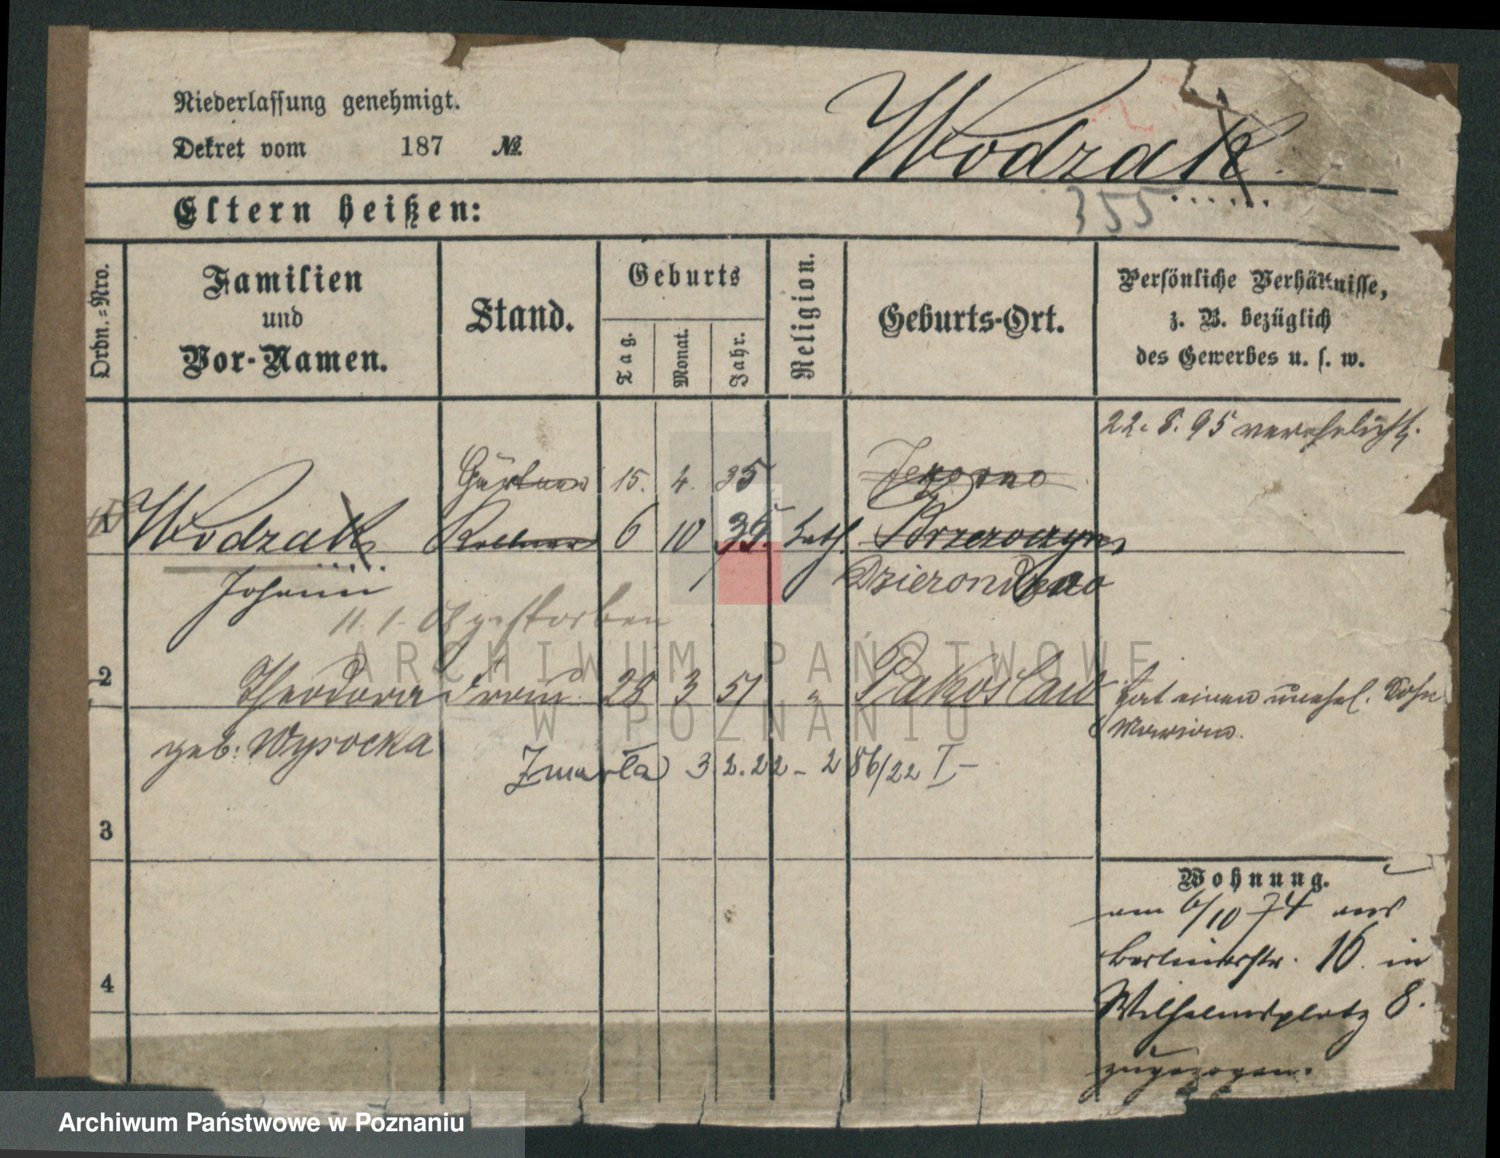 Niederlassung genehmigt.
Dekret vom 187 №
Wodzak.
355
Eltern heißen:
Ordn.=Nro.
Familien
und
Vor-Namen.
Stand.
Geburts
Tag.
Monat.
Jahr.
Religion.
Geburts-Ort.
Persönliche Verhältnisse,
z. B. bezüglich
des Gewerbes u. s. w.
22. 8. 95 verehelicht.
Gärtner 15. 4. 35
1 Wodzak Kellner 6 10 35. kath.
Johann
11. 1. 08 gestorben
2 Theodora Frau 25 3 51 " Pakoslaw hat einen unehel. Sohn
geb: Wysocka
Zmarła 3.2.22 - 286/22 I -
3
4
Wohnung.
am 6/10 74 aus
Berlinerstr. 16. in
Wilhelmsplatz 8.
zugezogen.
ARCHIWUM PAŃSTWOWE
W POZNANIU
Archiwum Państwowe w Poznaniu